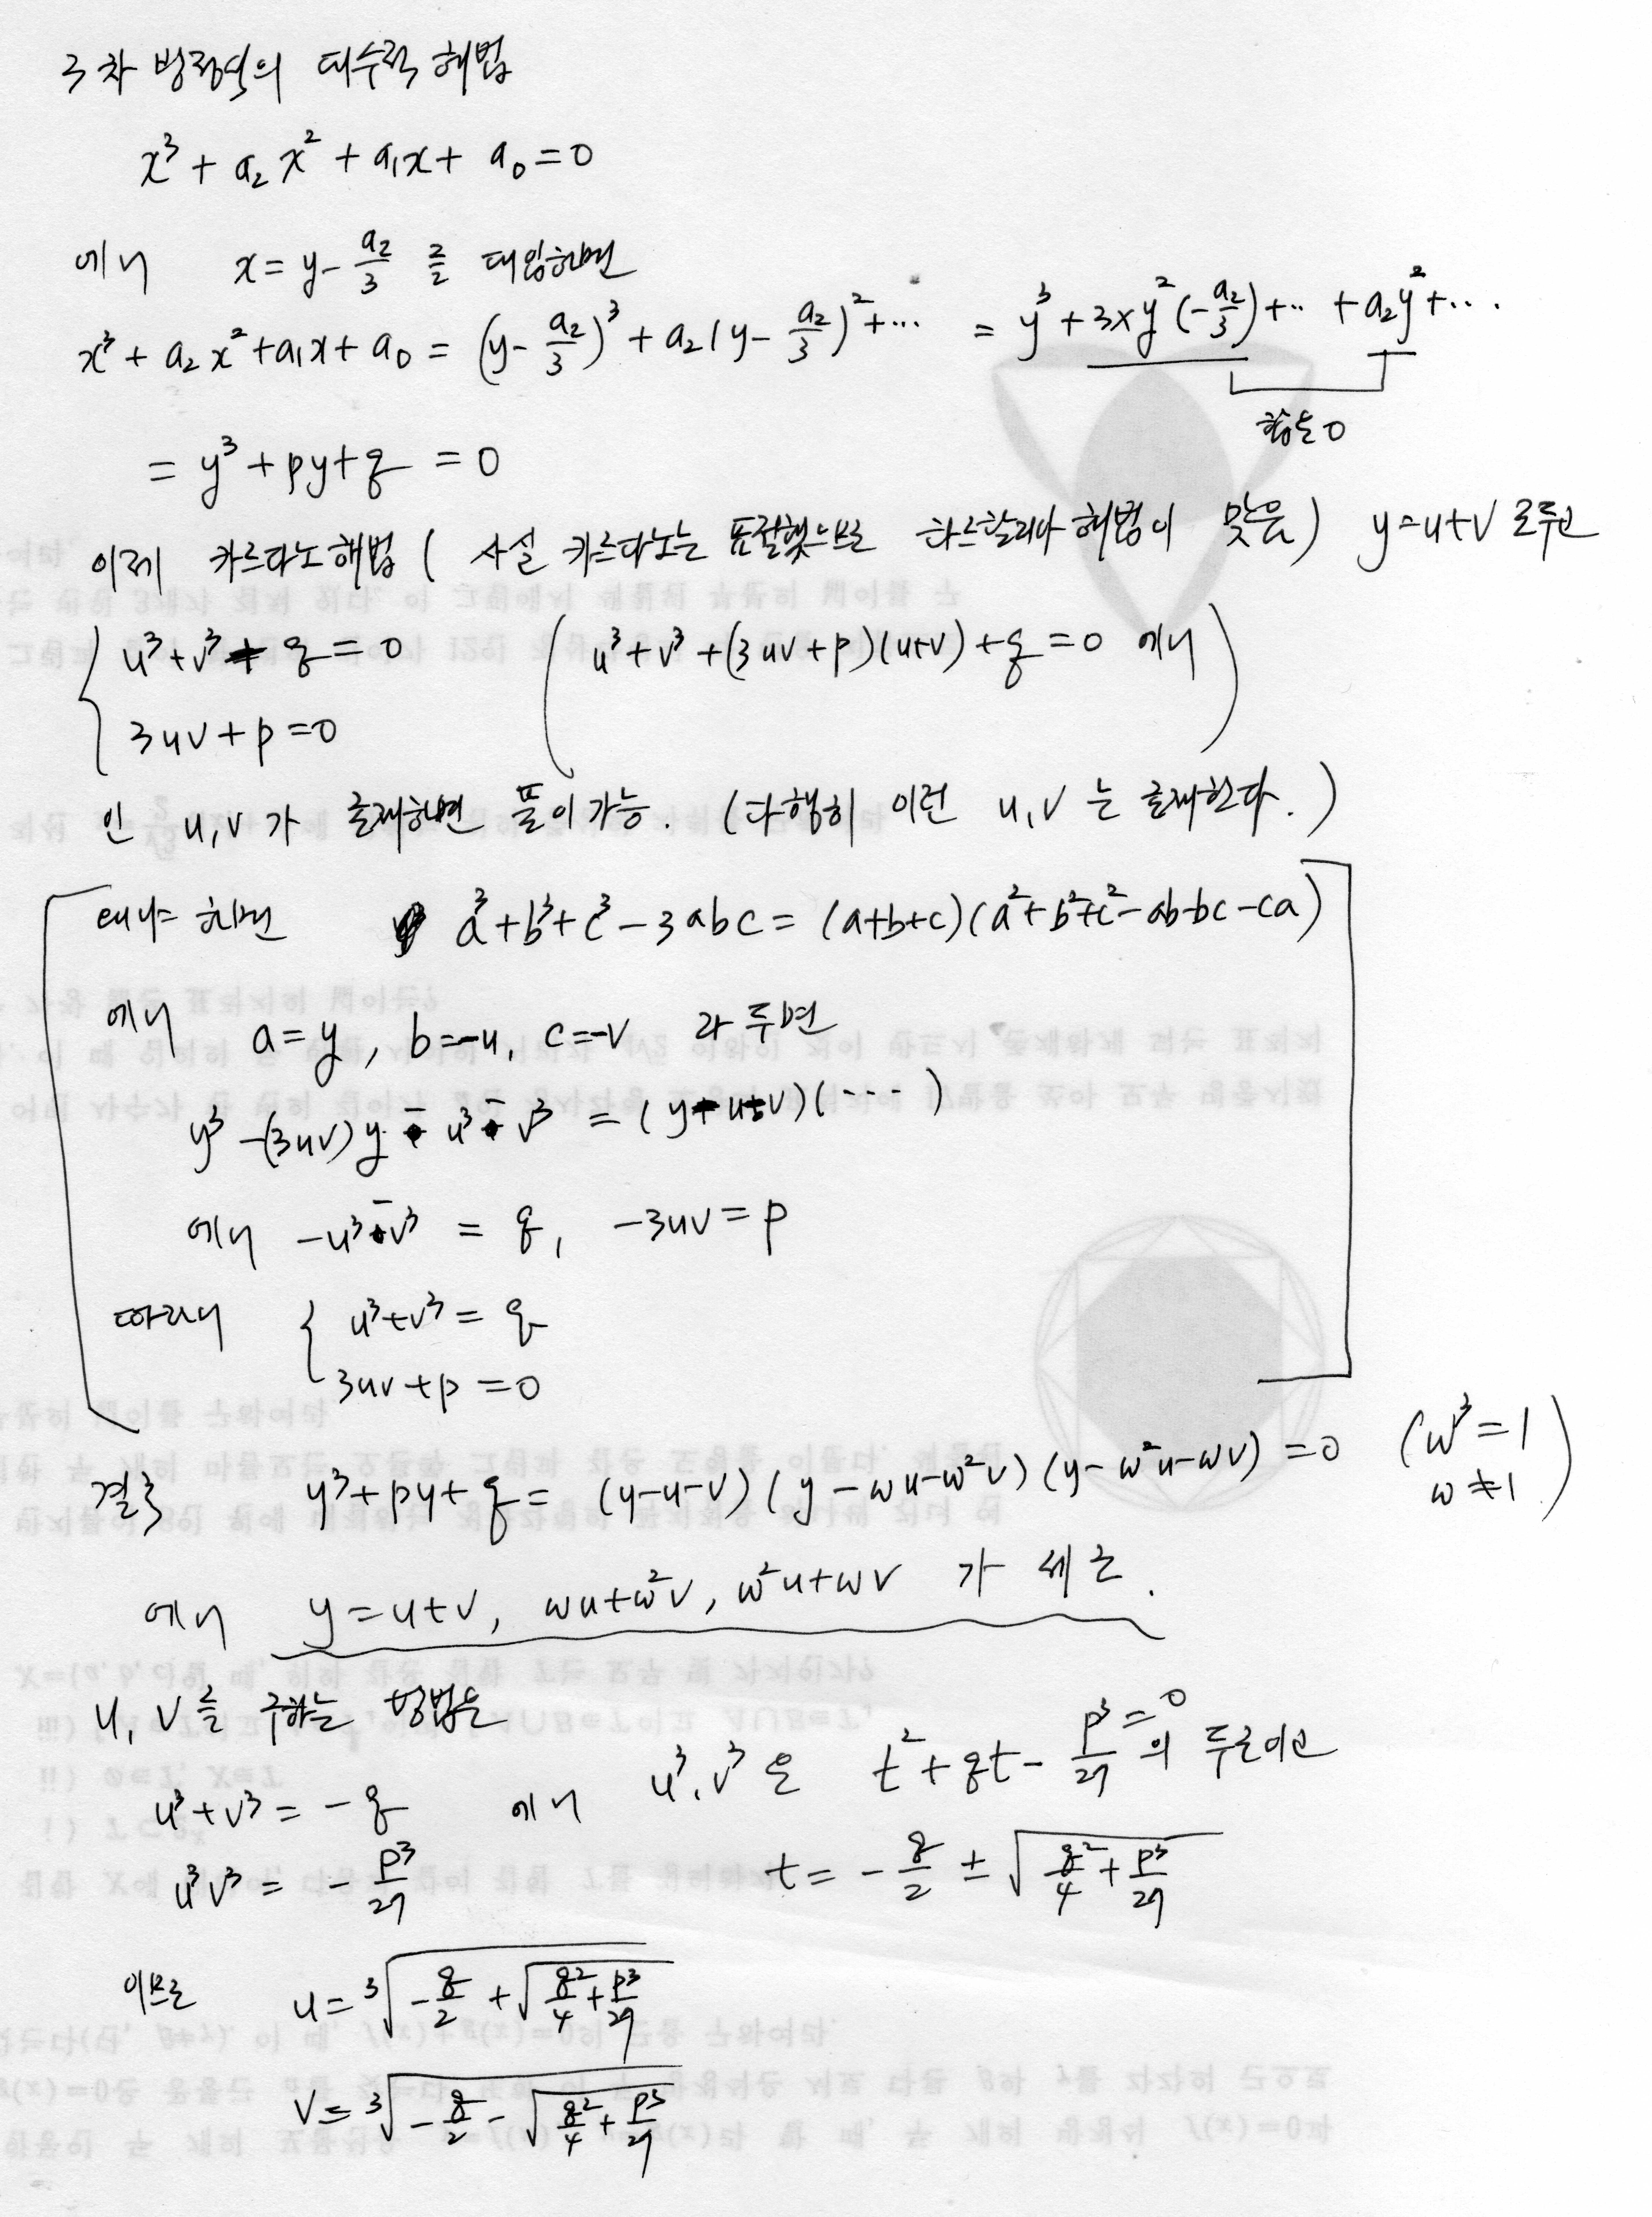 3차 방정식의 대수적 해법
x³ + a₂x² + a₁x + a₀ = 0
에서 x = y - a₂/3 를 대입하면
x³ + a₂x² + a₁x + a₀ = (y - a₂/3)³ + a₂(y - a₂/3)² + ⋯ = y³ + 3×y²(-a₂/3) + ⋯ + a₂y² + ⋯
합은 0
= y³ + py + q = 0
이제 카르다노 해법 ( 사실 카르다노는 표절했으므로 타르탈리아 해법이 맞음 ) y = u+v 로 두고
{ u³ + v³ + q = 0 ( u³ + v³ + (3uv + p)(u+v) + q = 0 에서 )
3uv + p = 0
인 u, v 가 존재하면 풀이 가능. (다행히 이런 u, v 는 존재한다.)
왜냐 하면 a³ + b³ + c³ - 3abc = (a+b+c)(a² + b² + c² - ab - bc - ca)
에서 a = y, b = -u, c = -v 라 두면
y³ - (3uv)y - u³ - v³ = (y - u - v)(⋯)
에서 -u³ - v³ = q, -3uv = p
따라서 { u³ + v³ = q
3uv + p = 0
결국 y³ + py + q = (y-u-v)(y - ωu - ω²v)(y - ω²u - ωv) = 0 (ω³ = 1
ω ≠ 1)
에서 y = u+v, ωu + ω²v, ω²u + ωv 가 세 근.
u, v를 구하는 방법은
u³ + v³ = -q 에서 u³, v³ 은 t² + qt - p³/27 = 0 의 두 근이고
u³v³ = - p³/27 t = - q/2 ± √(q²/4 + p³/27)
이므로 u = ³√(- q/2 + √(q²/4 + p³/27))
v = ³√(- q/2 - √(q²/4 + p³/27))